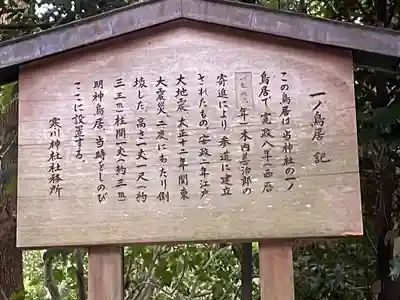 一ノ鳥居 記
この鳥居は当神社の一ノ
鳥居で寛政八年(西暦
一七九六年)木内善治郎の
寄進により参道に建立
されたもの(安政一年江戸
大地震 大正十二年関東
大震災 二度にわたり倒
壊した。高さ一丈一尺(約
三三m)柱間一丈(約三m)
明神鳥居、当時をしのび
ここに設置する。
寒川神社社務所